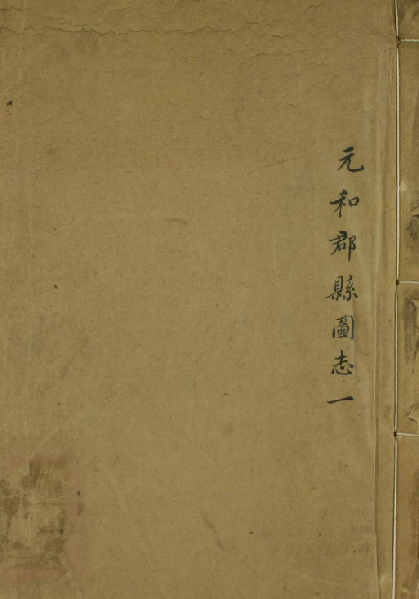 元和郡縣圖志一